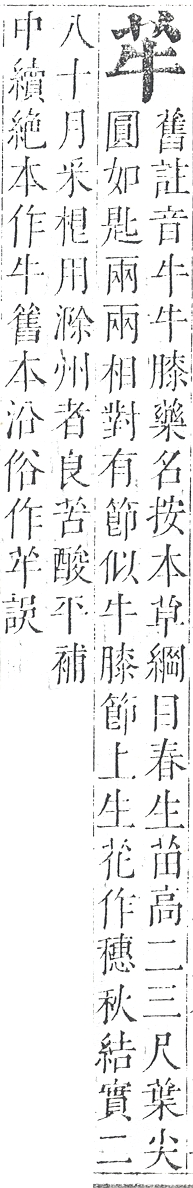 芈
舊註音牛牛膝藥名按本草綱目春生苗高二三尺葉尖
圓如匙兩兩相對有節似牛膝節上生花作穗秋結實二
八十月采根用滁州者良苦酸平補
中續絶本作牛舊本沿俗作芈誤